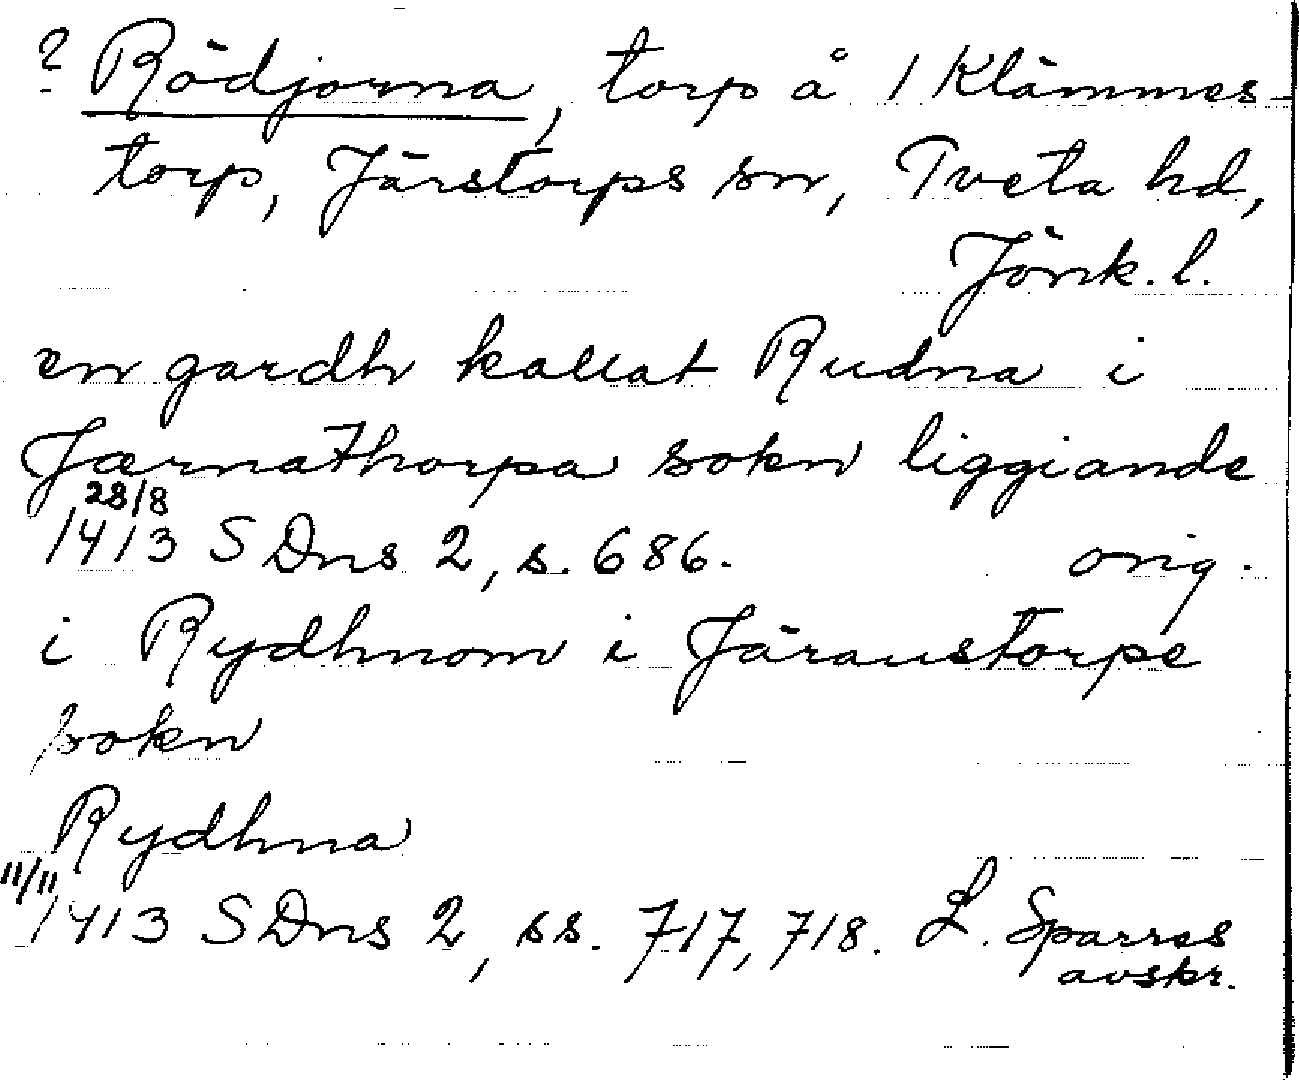 ? Rödjorna, torp å 1 Klämmes-
torp, Järstorps sn, Tveta hd,
Jönk. l.
en gardh kallat Rudna i
Jærnathorpa sokn liggiande
28/8
1413 SDns 2, s. 686. orig.
i Rydhnom i Järaustorpe
sokn
Rydhna
11/11
1413 SDns 2, ss. 717, 718. L. Sparres
avskr.